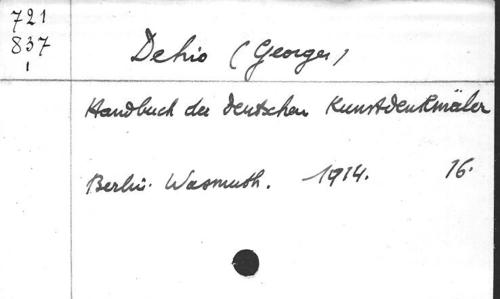 721
837
1
Dehio (Georges)
Handbuch der deutschen Kunstdenkmäler
Berlin. Wasmuth. 1914. 16.